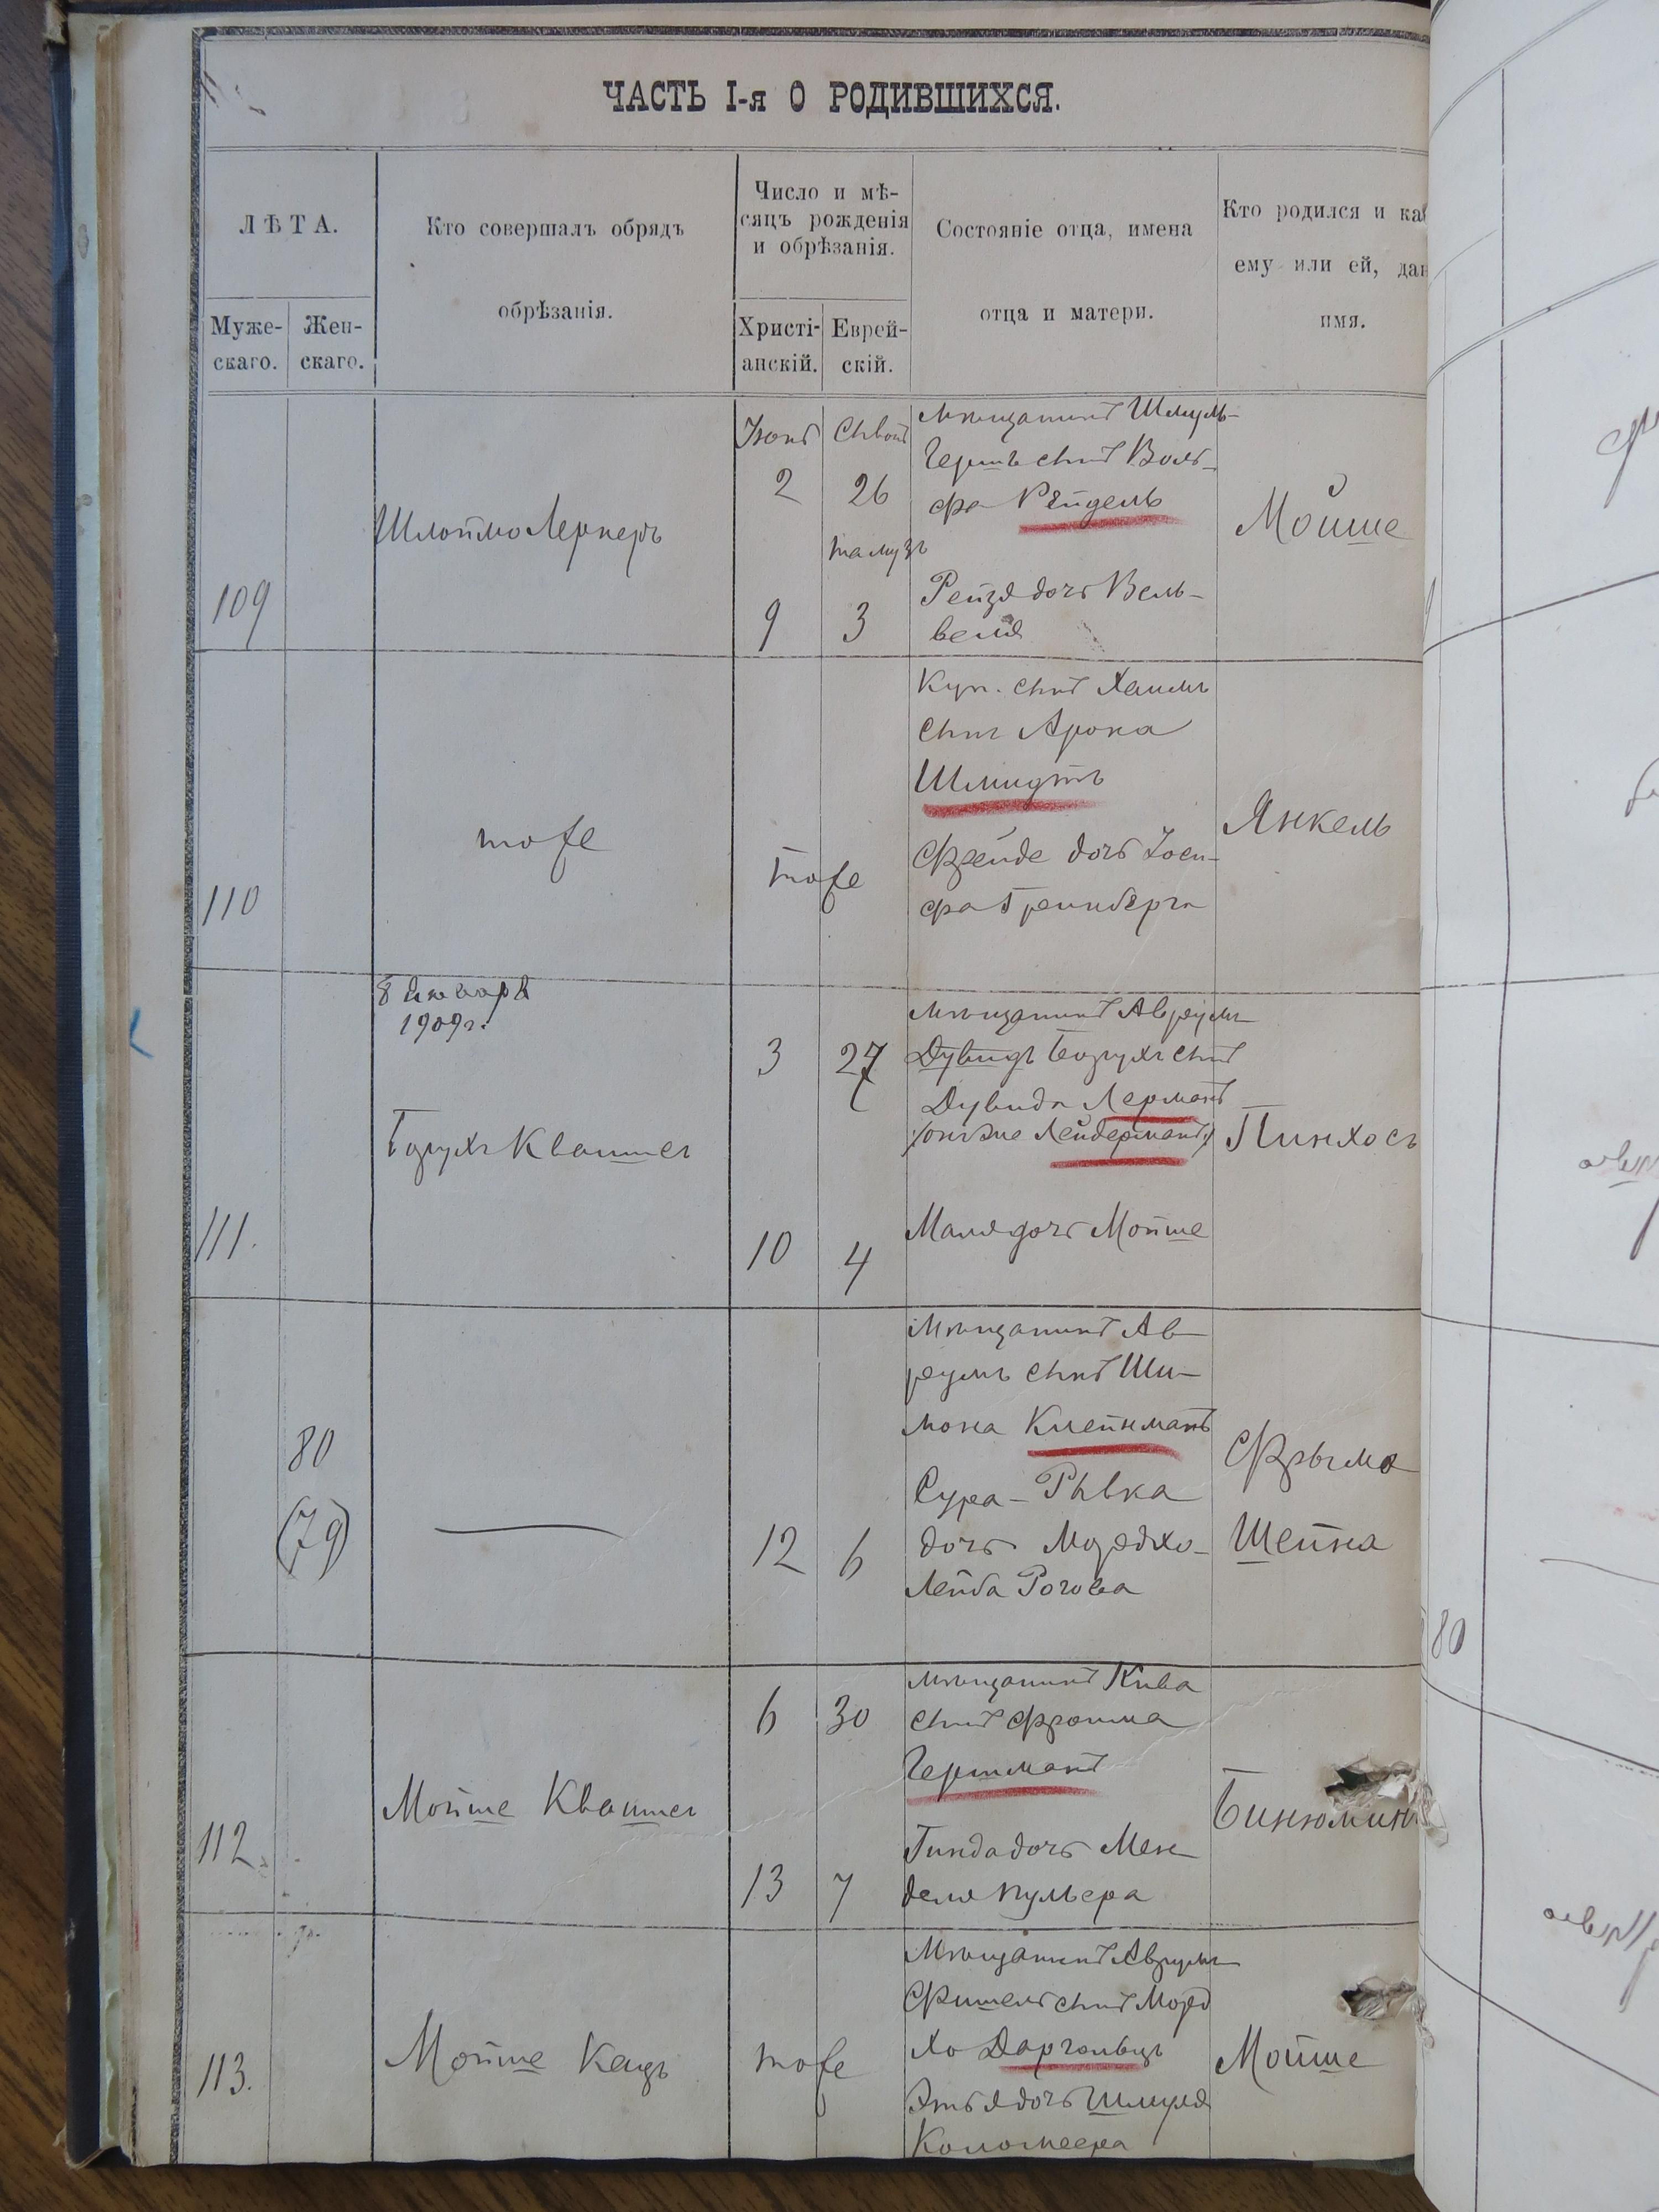 ЧАСТЬ I-я О РОДИВШИХСЯ.
ЛѢТА.
Муже-
скаго.
Жен-
скаго.
Кто совершалъ обрядъ
обрѣзанія.
Число и мѣ-
сяцъ рожденія
и обрѣзанія.
Христі-
анскій.
Еврей-
скій.
Состояніе отца, имена
отца и матери.
Кто родился и ка
ему или ей, дан
имя.
109
Шлоймо Лернеръ
Іюнь
2
9
Сиванъ
26
тамузъ
3
Мѣщанинъ Шмуль-
Гершъ сынъ Воль-
фа Рейдель
Рейзя дочь Вель-
веля
Мойше
110
тоже
тоже
Куп. сынъ Хаимъ
сынъ Арона
Шмидтъ
Фрейде дочь Іоси-
фа Гринберга
Янкель
111.
8 Января
1909 г.
Борухъ Квашпель
3
10
27
4
Мѣщанинъ Аврумъ
Дувидъ Борухъ сынъ
Дувида Лерманъ
/онъ же Лейдерманъ/
Маля дочь Мойше
Пинхосъ
80
(79)
12
6
Мѣщанинъ Ав-
румъ сынъ Ши-
мона Клейнманъ
Сура-Рывка
дочь Мордхо-
Лейба Рогова
Фрыма
Шейна
112.
Мойше Квашпель
6
13
30
7
Мѣщанинъ Кива
сынъ Фроима
Гершманъ
Гинда дочь Мен
деля Кульера
Бинюминъ
113.
Мойше Кацъ
тоже
Мѣщанинъ Аврумъ
Фишель сынъ Морд
хо Дарговецъ
Этя дочь Шмуля
Коломеера
Мойше
80